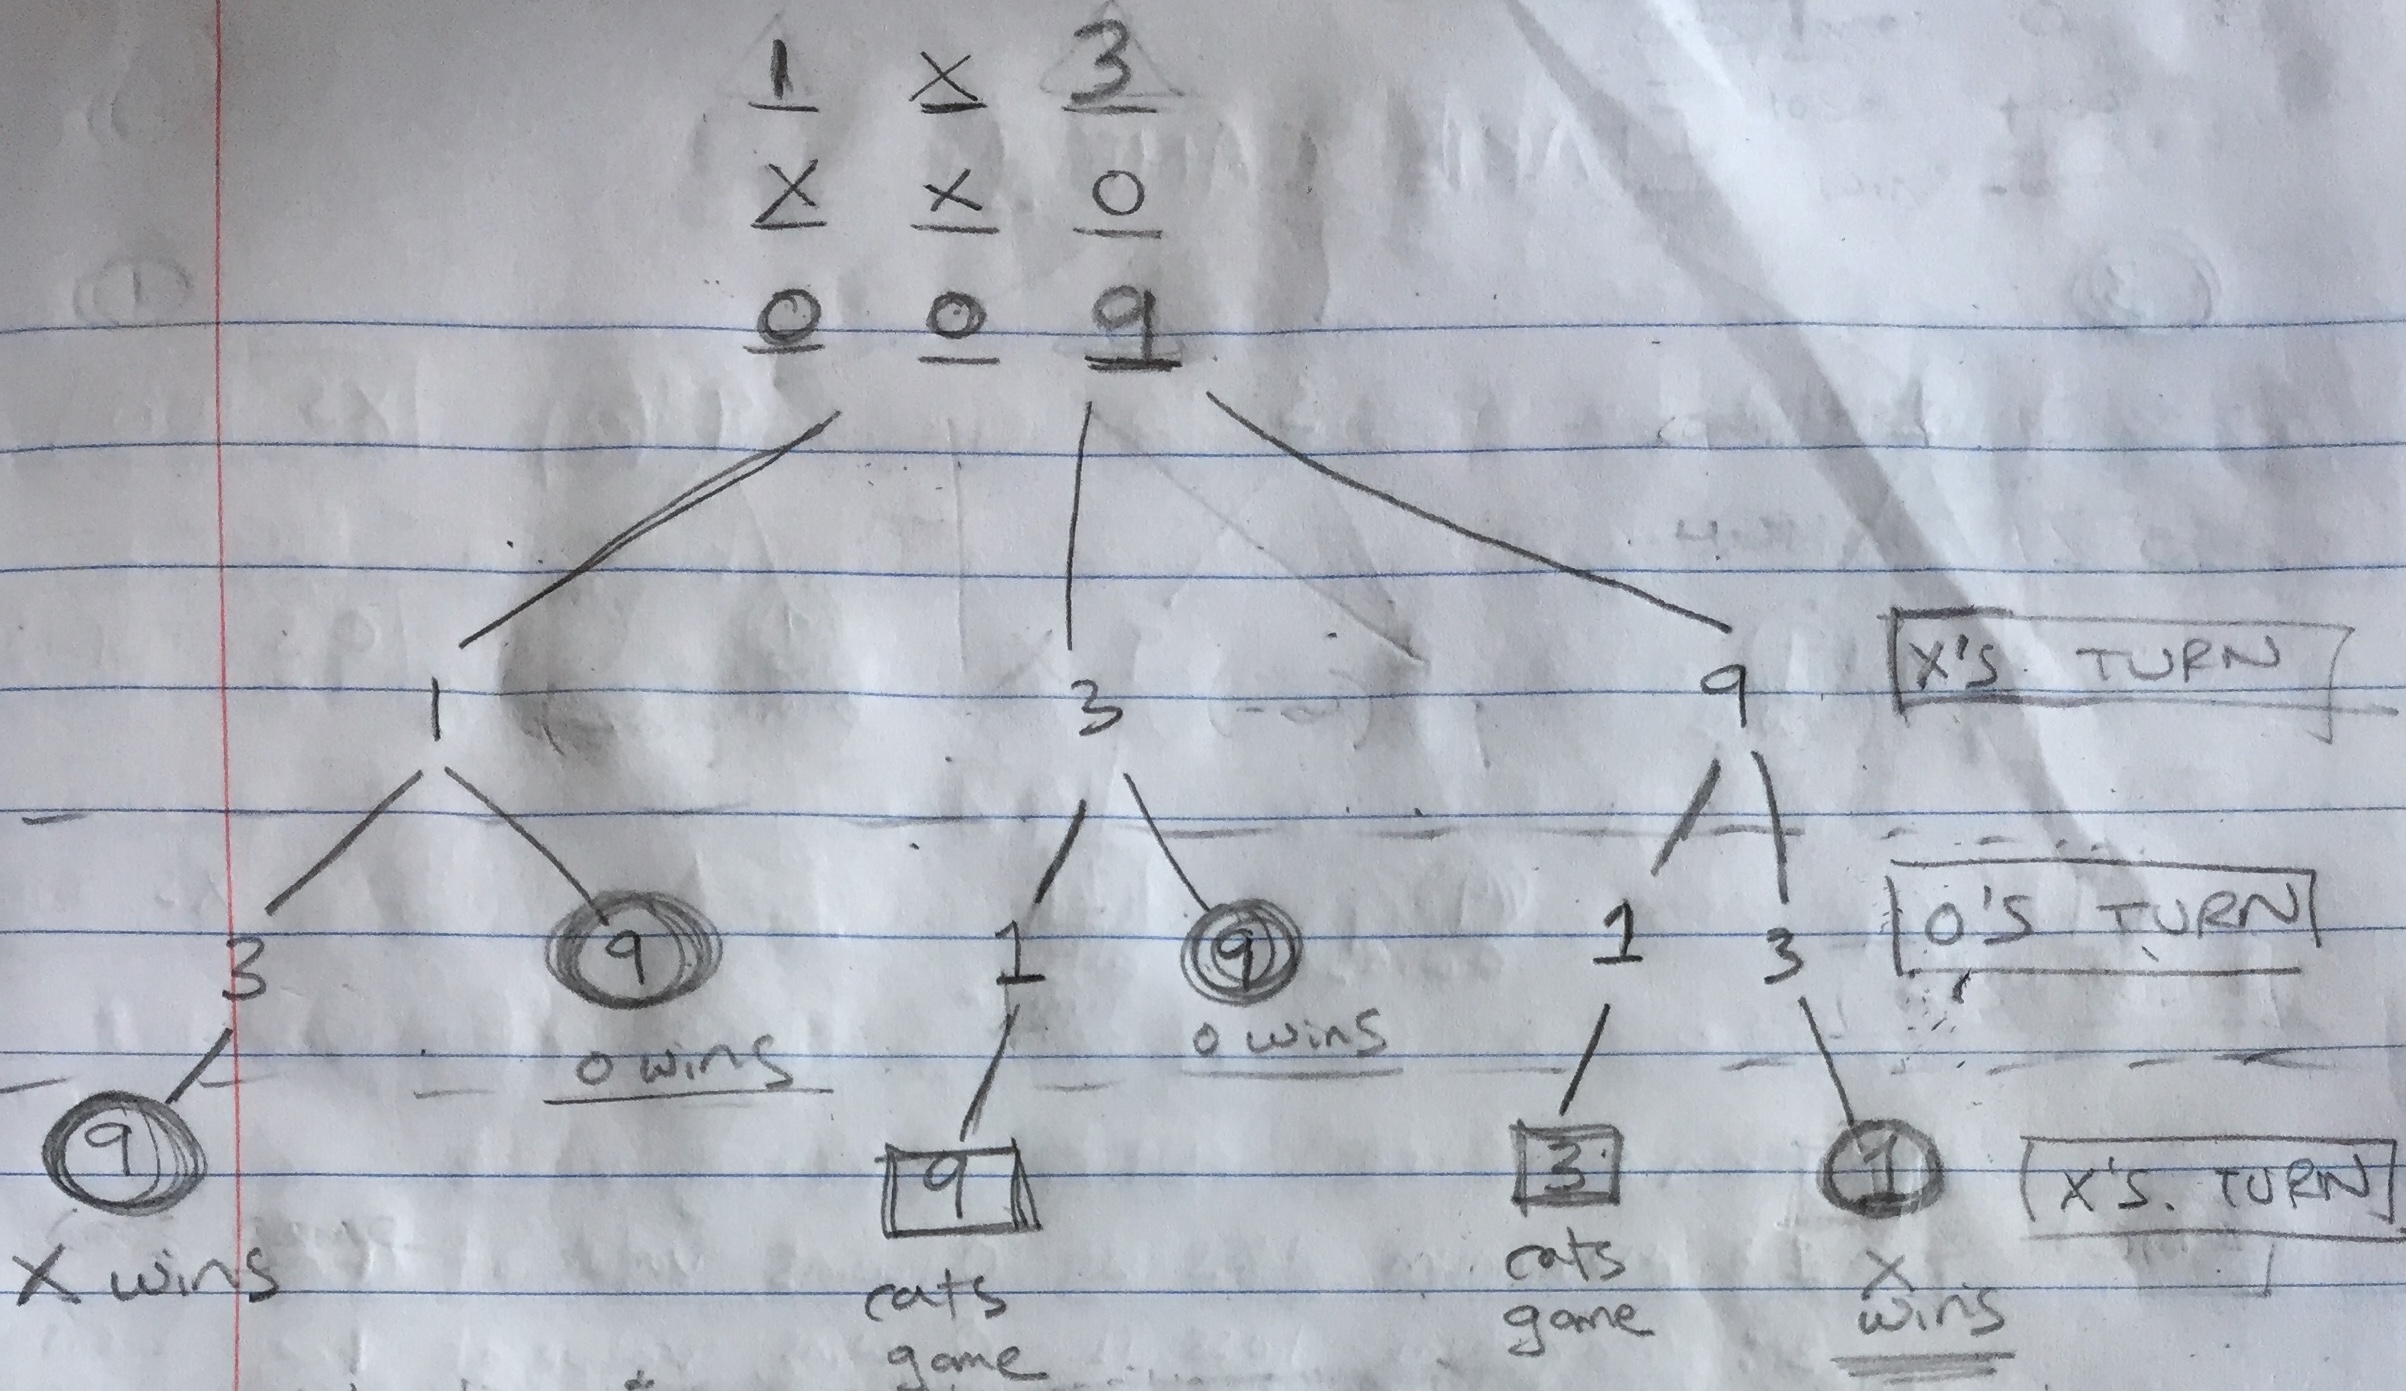 1 X 3
X X O
O O 9
1 3 9 X'S TURN
3 9 1 9 1 3 O'S TURN
O wins O wins
9 9 3 1 X'S. TURN
X wins cats game cats game X wins